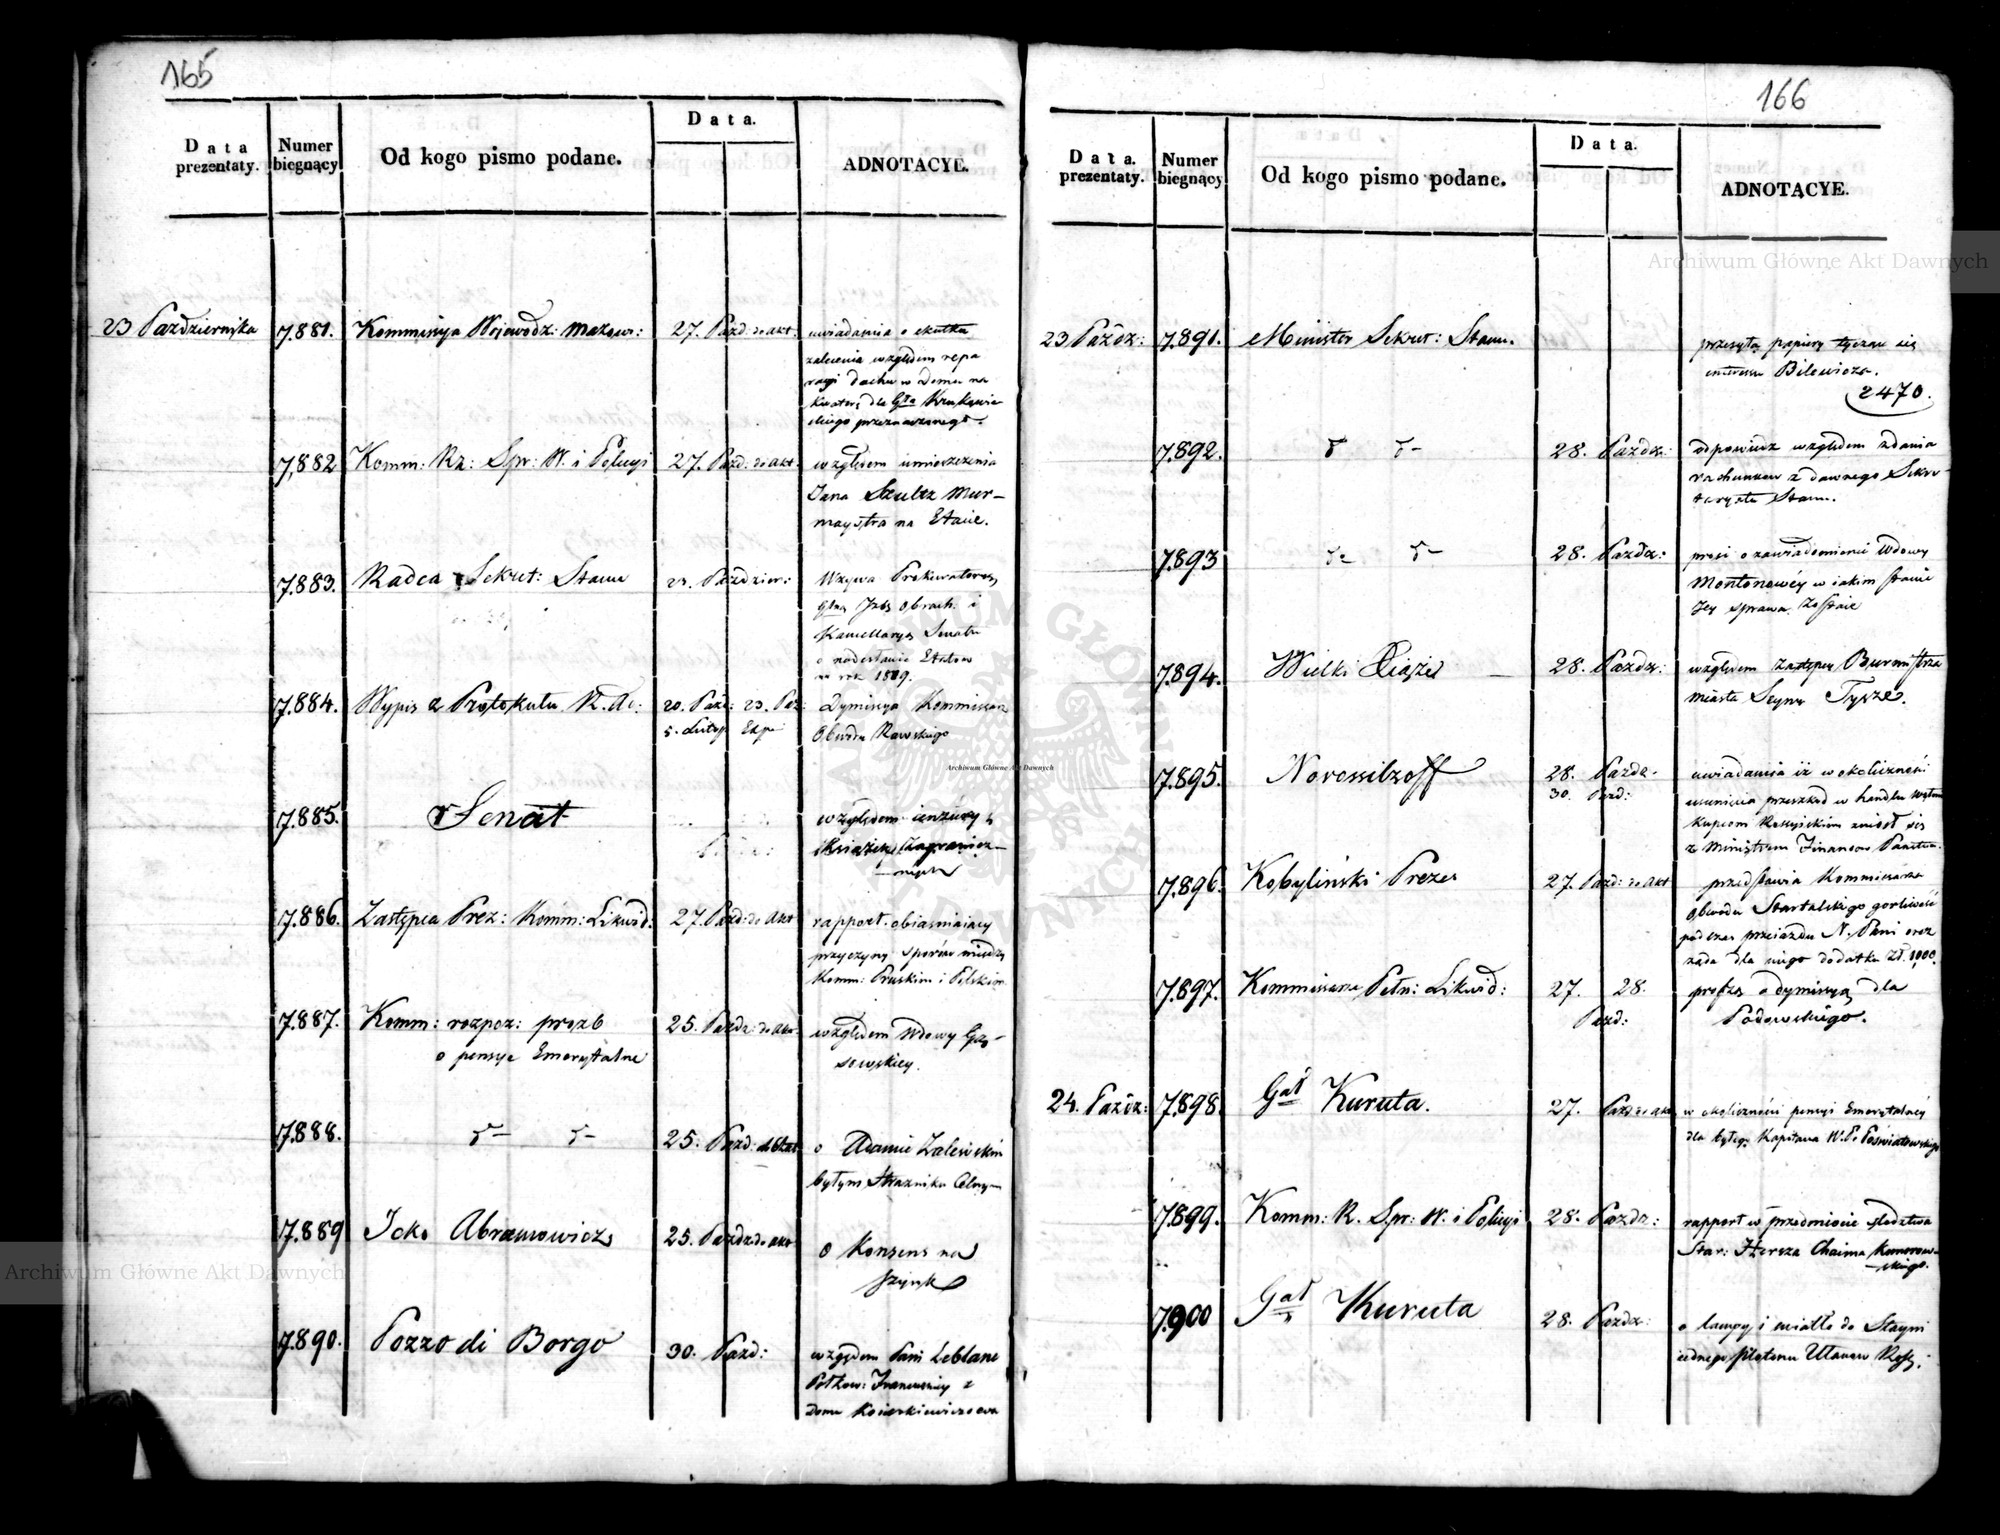 165
Data prezentaty.
Numer biegnący
Od kogo pismo podane.
Data.
ADNOTACYE.
23 Października 7.881. Kommissya Wojewodz: Mazow: 27. Paźd: do akt: uwiadamia o skutku
zalecenia względem repa
racyi dachu w Domu na
kwaterę dla Gła Krukowie
ckiego przeznaczonego.
7.882 Komm: Rz: Spr: W. i Policyi 27. Paźd: do akt. względem umieszczenia
Jana Szultz Mur-
maystra na Etacie.
7.883. Radca Sekret: Stanu 23. Paździer: Wzywa Prokuratora
Głną Jzbę Obrach: i
Kancellaryą Senatu
o nadesłanie Etatów
na rok 1819.
7.884. Wypis z Protokułu R. Ad: 20. Paźd: 23. Paź: Dymissya Kommissarza
5. Lutep Exp Obwodu Rawskiego
7.885. Senat względem cenzury
Książek Zagranicz-
nych
7.886. Zastępca Prez: Komm: Likwid: 27. Paźd: do akt rapport obiaśniaiący
przyczyny sporów między
Komm: Pruskim i Polskim
7.887. Komm: rozpoz: prozb 25. Paźdz: do akt. względem Wdowy Gąs-
o pensye Emerytalne sowskiey.
7.888. 25. Paźd: o Adamie Zalewskim
byłym Strażniku Celnym
7.889 Icko Abramowicz 25. Paźdz: do akt o Konsens na
szynk
7.890. Pozzo di Borgo 30. Paźd: względem Pani Leblanc
Pułkow: Francuzkiey z
domu Kościeszkiewiczowa
166
Data. prezentaty.
Numer biegnący
Od kogo pismo podane.
Data.
ADNOTACYE.
23 Paźdz: 7.891. Minister Sekret: Stanu. przesyła papiery tyczące się
interessu Bilewicza.
2470.
7.892. 28. Paźdz: odpowiedź względem zdania
rachunków z dawnego Sekre-
taryatu Stanu.
7.893 28. Paźdz: prosi o zawiadomienie Wdowy
Montonowéy w iakim stanie
Jey sprawa zostaie
7.894. Wielki Xiąże 28. Paźdz: względem zastępcy Burmistrza
miasta Seyny Tysze.
7.895. Novossilzoff 28. Paźdz.
30. Paźd: uwiadamia iż w okoliczności
usunięcia przeszkód w handlu
kupcom Rossyiskim zniósł się
z Ministrem Finansów Państwa.
7.896. Kobyliński Prezes 27. Paźd: do akt przedstawia Kommissarza
Obwodu Startalskiego gorliwość
podczas przeiazdu N. Pani oraz
żąda dla niego dodatku zł. 1000.
7.897. Kommissarz Pełn: Likwid: 27. 28. prosbę o dymissyą dla
Paźd: Padowskiego.
24. Paźdz: 7.898. Gał Kuruta. 27. Paźd: do akt w okoliczności pensyi Emerytalnéy
dla byłego Kapitana W. P. Poświatowskiego
7.899. Komm: R. Spr: W. i Policyi 28. Paźdz: rapport w przedmiocie śledztwa
Star: Hersza Chaima Komorow-
skiego.
7.900 Gał Kuruta 28. Paźdz: o lampy i światło do Stayni
iednego plutonu Ułanów Ross:
Archiwum Główne Akt Dawnych
Archiwum Główne Akt Dawnych
Archiwum Główne Akt Dawnych
ARCHIWUM GŁÓWNE AKT DAWNYCH